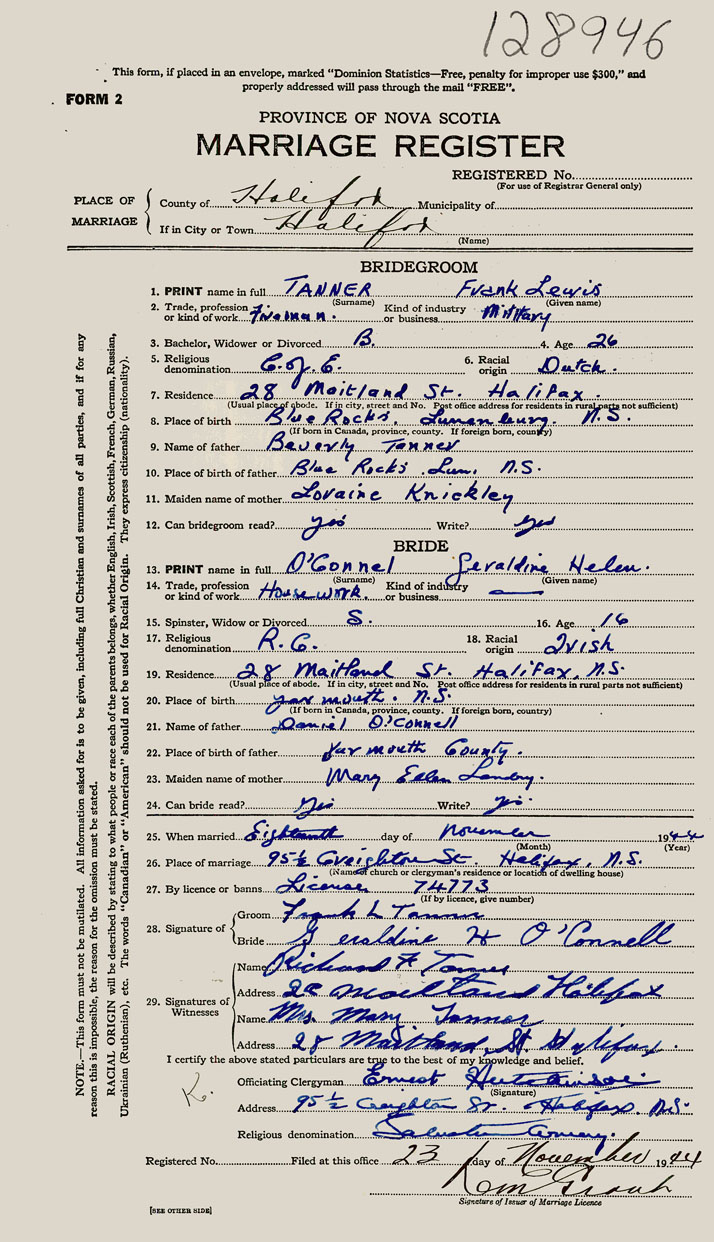 128946
This form, if placed in an envelope, marked "Dominion Statistics—Free, penalty for improper use $300," and
properly addressed will pass through the mail "FREE".
FORM 2
PROVINCE OF NOVA SCOTIA
MARRIAGE REGISTER
REGISTERED No.
(For use of Registrar General only)
PLACE OF MARRIAGE
County of Halifax Municipality of
If in City or Town Halifax
(Name)
BRIDEGROOM
1. PRINT name in full TANNER Frank Lewis
(Surname) (Given name)
2. Trade, profession or kind of work Fireman. Kind of industry or business Military
3. Bachelor, Widower or Divorced B. 4. Age 26
5. Religious denomination C. of E. 6. Racial origin Dutch.
7. Residence 28 Maitland St. Halifax.
(Usual place of abode. If in city, street and No. Post office address for residents in rural parts not sufficient)
8. Place of birth Blue Rocks, Lunenburg. N.S.
(If born in Canada, province, county. If foreign born, country)
9. Name of father Beverly Tanner
10. Place of birth of father Blue Rocks Lun. N.S.
11. Maiden name of mother Loraine Knickley
12. Can bridegroom read? yes Write? yes
BRIDE
13. PRINT name in full O'Connel Geraldine Helen.
(Surname) (Given name)
14. Trade, profession or kind of work Housework. Kind of industry or business —
15. Spinster, Widow or Divorced S. 16. Age 16
17. Religious denomination R.C. 18. Racial origin Irish
19. Residence 28 Maitland St. Halifax, N.S.
(Usual place of abode. If in city, street and No. Post office address for residents in rural parts not sufficient)
20. Place of birth yarmouth. N.S.
(If born in Canada, province, county. If foreign born, country)
21. Name of father Daniel O'Connell
22. Place of birth of father Yarmouth County.
23. Maiden name of mother Mary Ellen Landry.
24. Can bride read? Yes Write? yes.
25. When married Eighteenth day of November 1944
(Month) (Year)
26. Place of marriage 95½ Creighton St. Halifax, N.S.
(Name of church or clergyman's residence or location of dwelling house)
27. By licence or banns License 74773
(If by licence, give number)
28. Signature of
Groom Frank L Tanner
Bride Geraldine H O'Connell
29. Signatures of Witnesses
Name Richard F Tanner
Address 28 Maitland Halifax
Name Mrs. Mary Tanner
Address 28 Maitland St Halifax.
I certify the above stated particulars are true to the best of my knowledge and belief.
Officiating Clergyman Ernest Hutchinson
(Signature)
Address 95½ Creighton St. Halifax. N.S.
K.
Religious denomination Salvation Army.
Registered No. Filed at this office 23 day of November 1944
Signature of Issuer of Marriage Licence
[SEE OTHER SIDE]
NOTE.—This form must not be mutilated. All information asked for is to be given, including full Christian and surnames of all parties, and if for any
reason this is impossible, the reason for the omission must be stated.
RACIAL ORIGIN will be described by stating to what people or race each of the parents belongs, whether English, Irish, Scottish, French, German, Russian,
Ukrainian (Ruthenian), etc. The words "Canadian" or "American" should not be used for Racial Origin. They express citizenship (nationality).